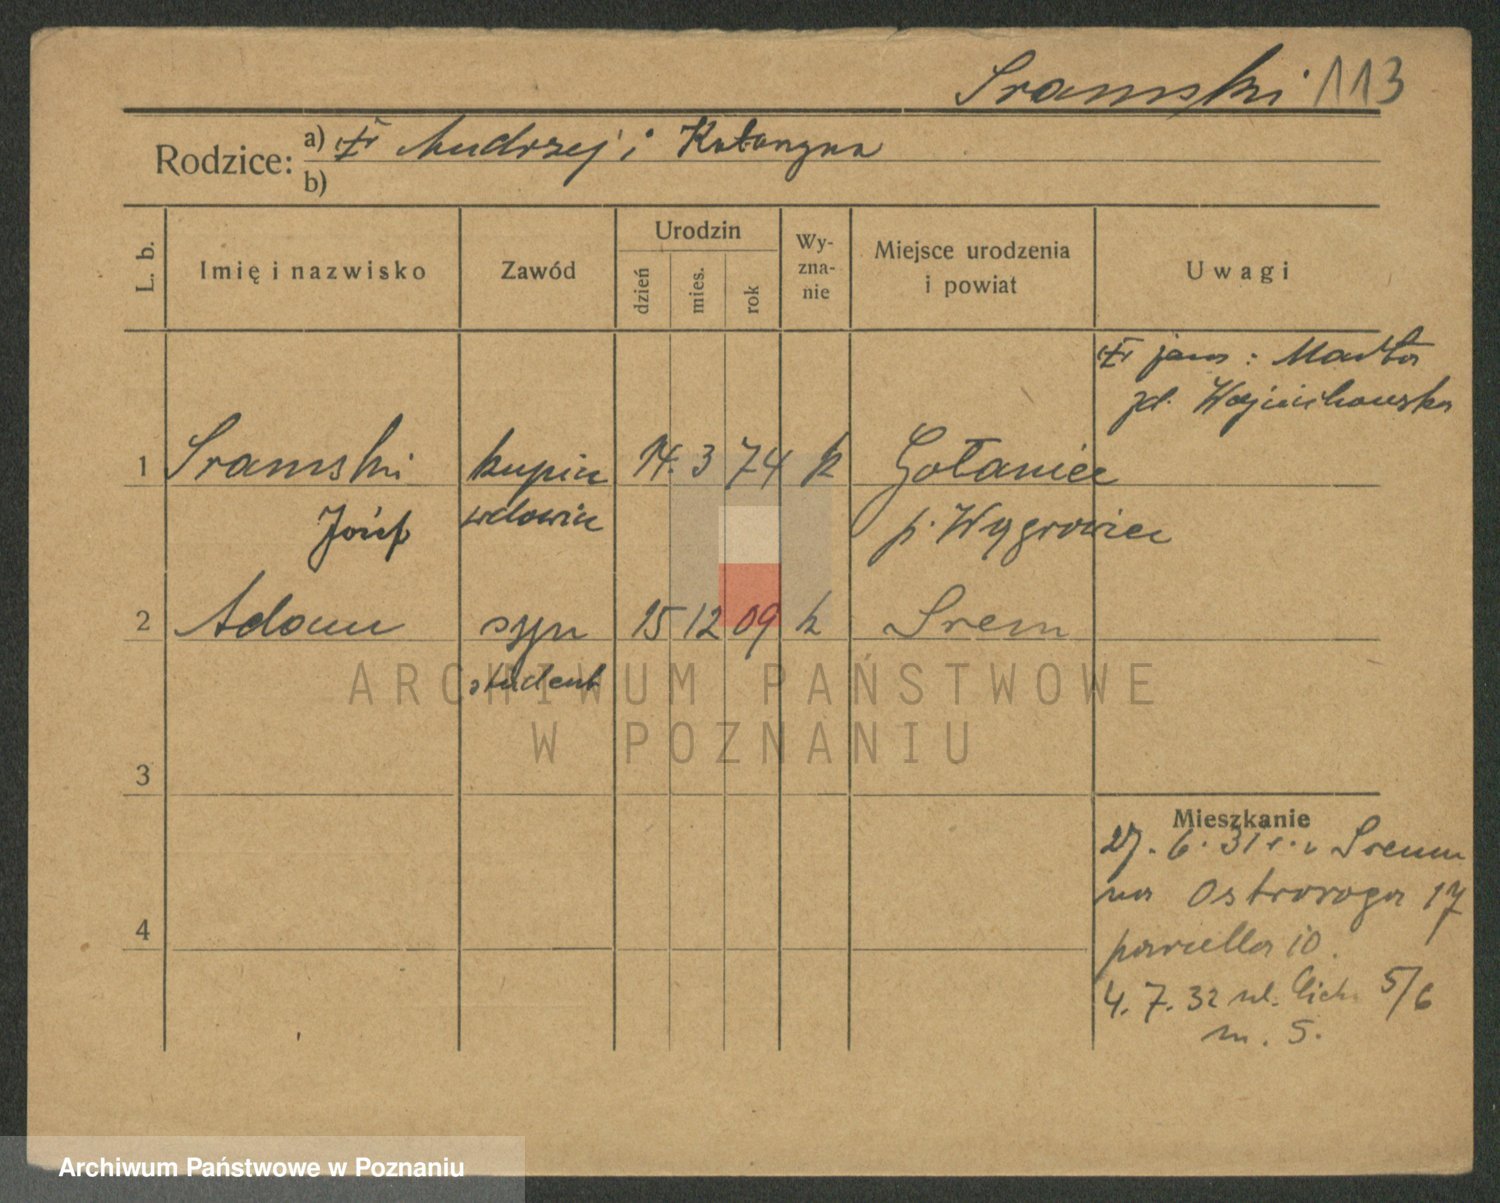 Sramski 113
Rodzice: a) Andrzej i Katarzyna
b)
L. b.
Imię i nazwisko
Zawód
Urodzin
dzień
mies.
rok
Wy-
zna-
nie
Miejsce urodzenia
i powiat
Uwagi
Marta
Wojciechowska
1 Sramski kupiec 14. 3 74 k Gołaniec
Józef wdowiec p. Wągrowiec
2 Adam syn 15 12 09 k Srem
student
3
4
Mieszkanie
27. 6. 31 Sremu
na Ostroroga 17
parcella 10.
4. 7. 32 ul. 5/6
m. 5.
ARCHIWUM PAŃSTWOWE
W POZNANIU
Archiwum Państwowe w Poznaniu